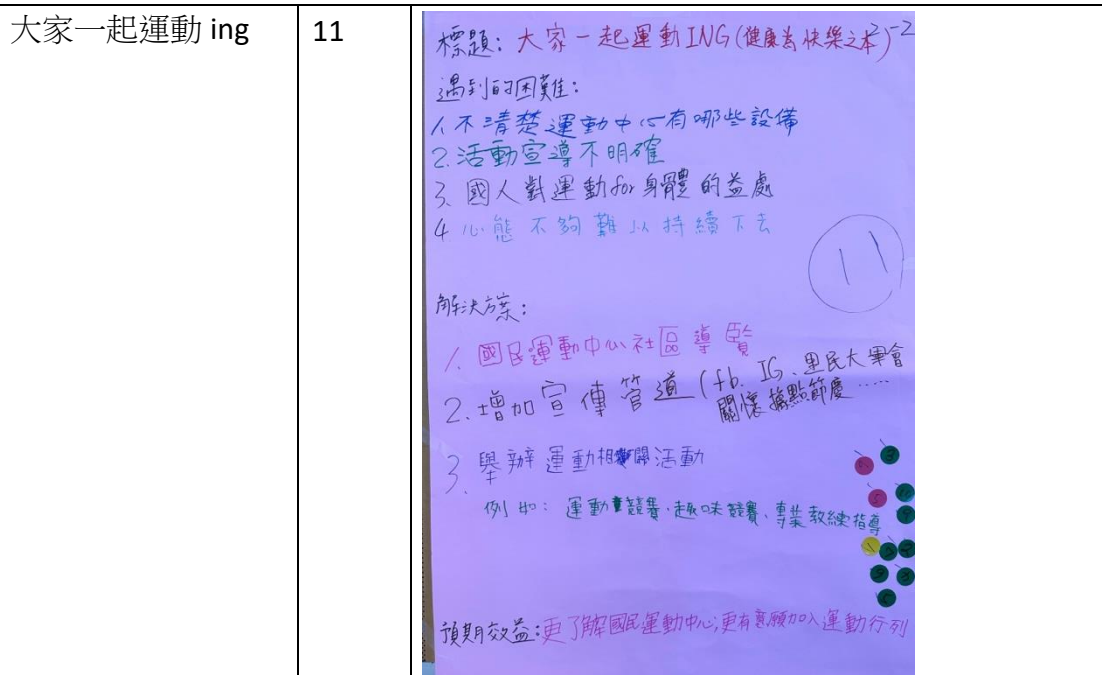 大家一起運動 ing
11
2-2
標題: 大家一起運動ING(健康為快樂之本)
遇到的困難:
1.不清楚運動中心有哪些設備
2.活動宣導不明確
3.國人對運動for身體的益處
4.心態不夠難以持續下去
11
解決方案:
1.國民運動中心社區導覽
2.增加宣傳管道(fb. IG、里民大會
關懷據點節慶……
3.舉辦運動相關活動
例如: 運動競賽、趣味競賽、專業教練指導
預期效益:更了解國民運動中心;更有意願加入運動行列